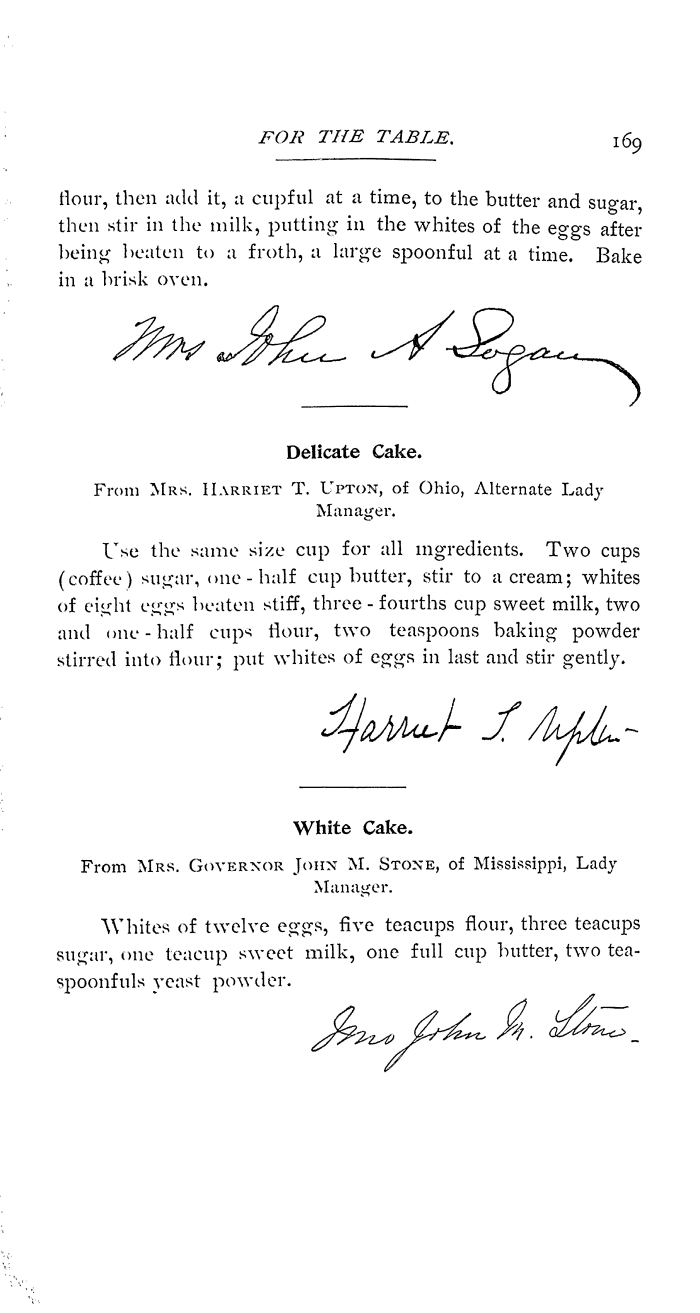 FOR THE TABLE. 169
flour, then add it, a cupful at a time, to the butter and sugar,
then stir in the milk, putting in the whites of the eggs after
being beaten to a froth, a large spoonful at a time. Bake
in a brisk oven.
Mrs John A Logan
Delicate Cake.
From MRS. HARRIET T. UPTON, of Ohio, Alternate Lady
Manager.
Use the same size cup for all ingredients. Two cups
(coffee) sugar, one-half cup butter, stir to a cream; whites
of eight eggs beaten stiff, three-fourths cup sweet milk, two
and one-half cups flour, two teaspoons baking powder
stirred into flour; put whites of eggs in last and stir gently.
Harriet T. Upton
White Cake.
From MRS. GOVERNOR JOHN M. STONE, of Mississippi, Lady
Manager.
Whites of twelve eggs, five teacups flour, three teacups
sugar, one teacup sweet milk, one full cup butter, two tea-
spoonfuls yeast powder.
Mrs John M. Stone